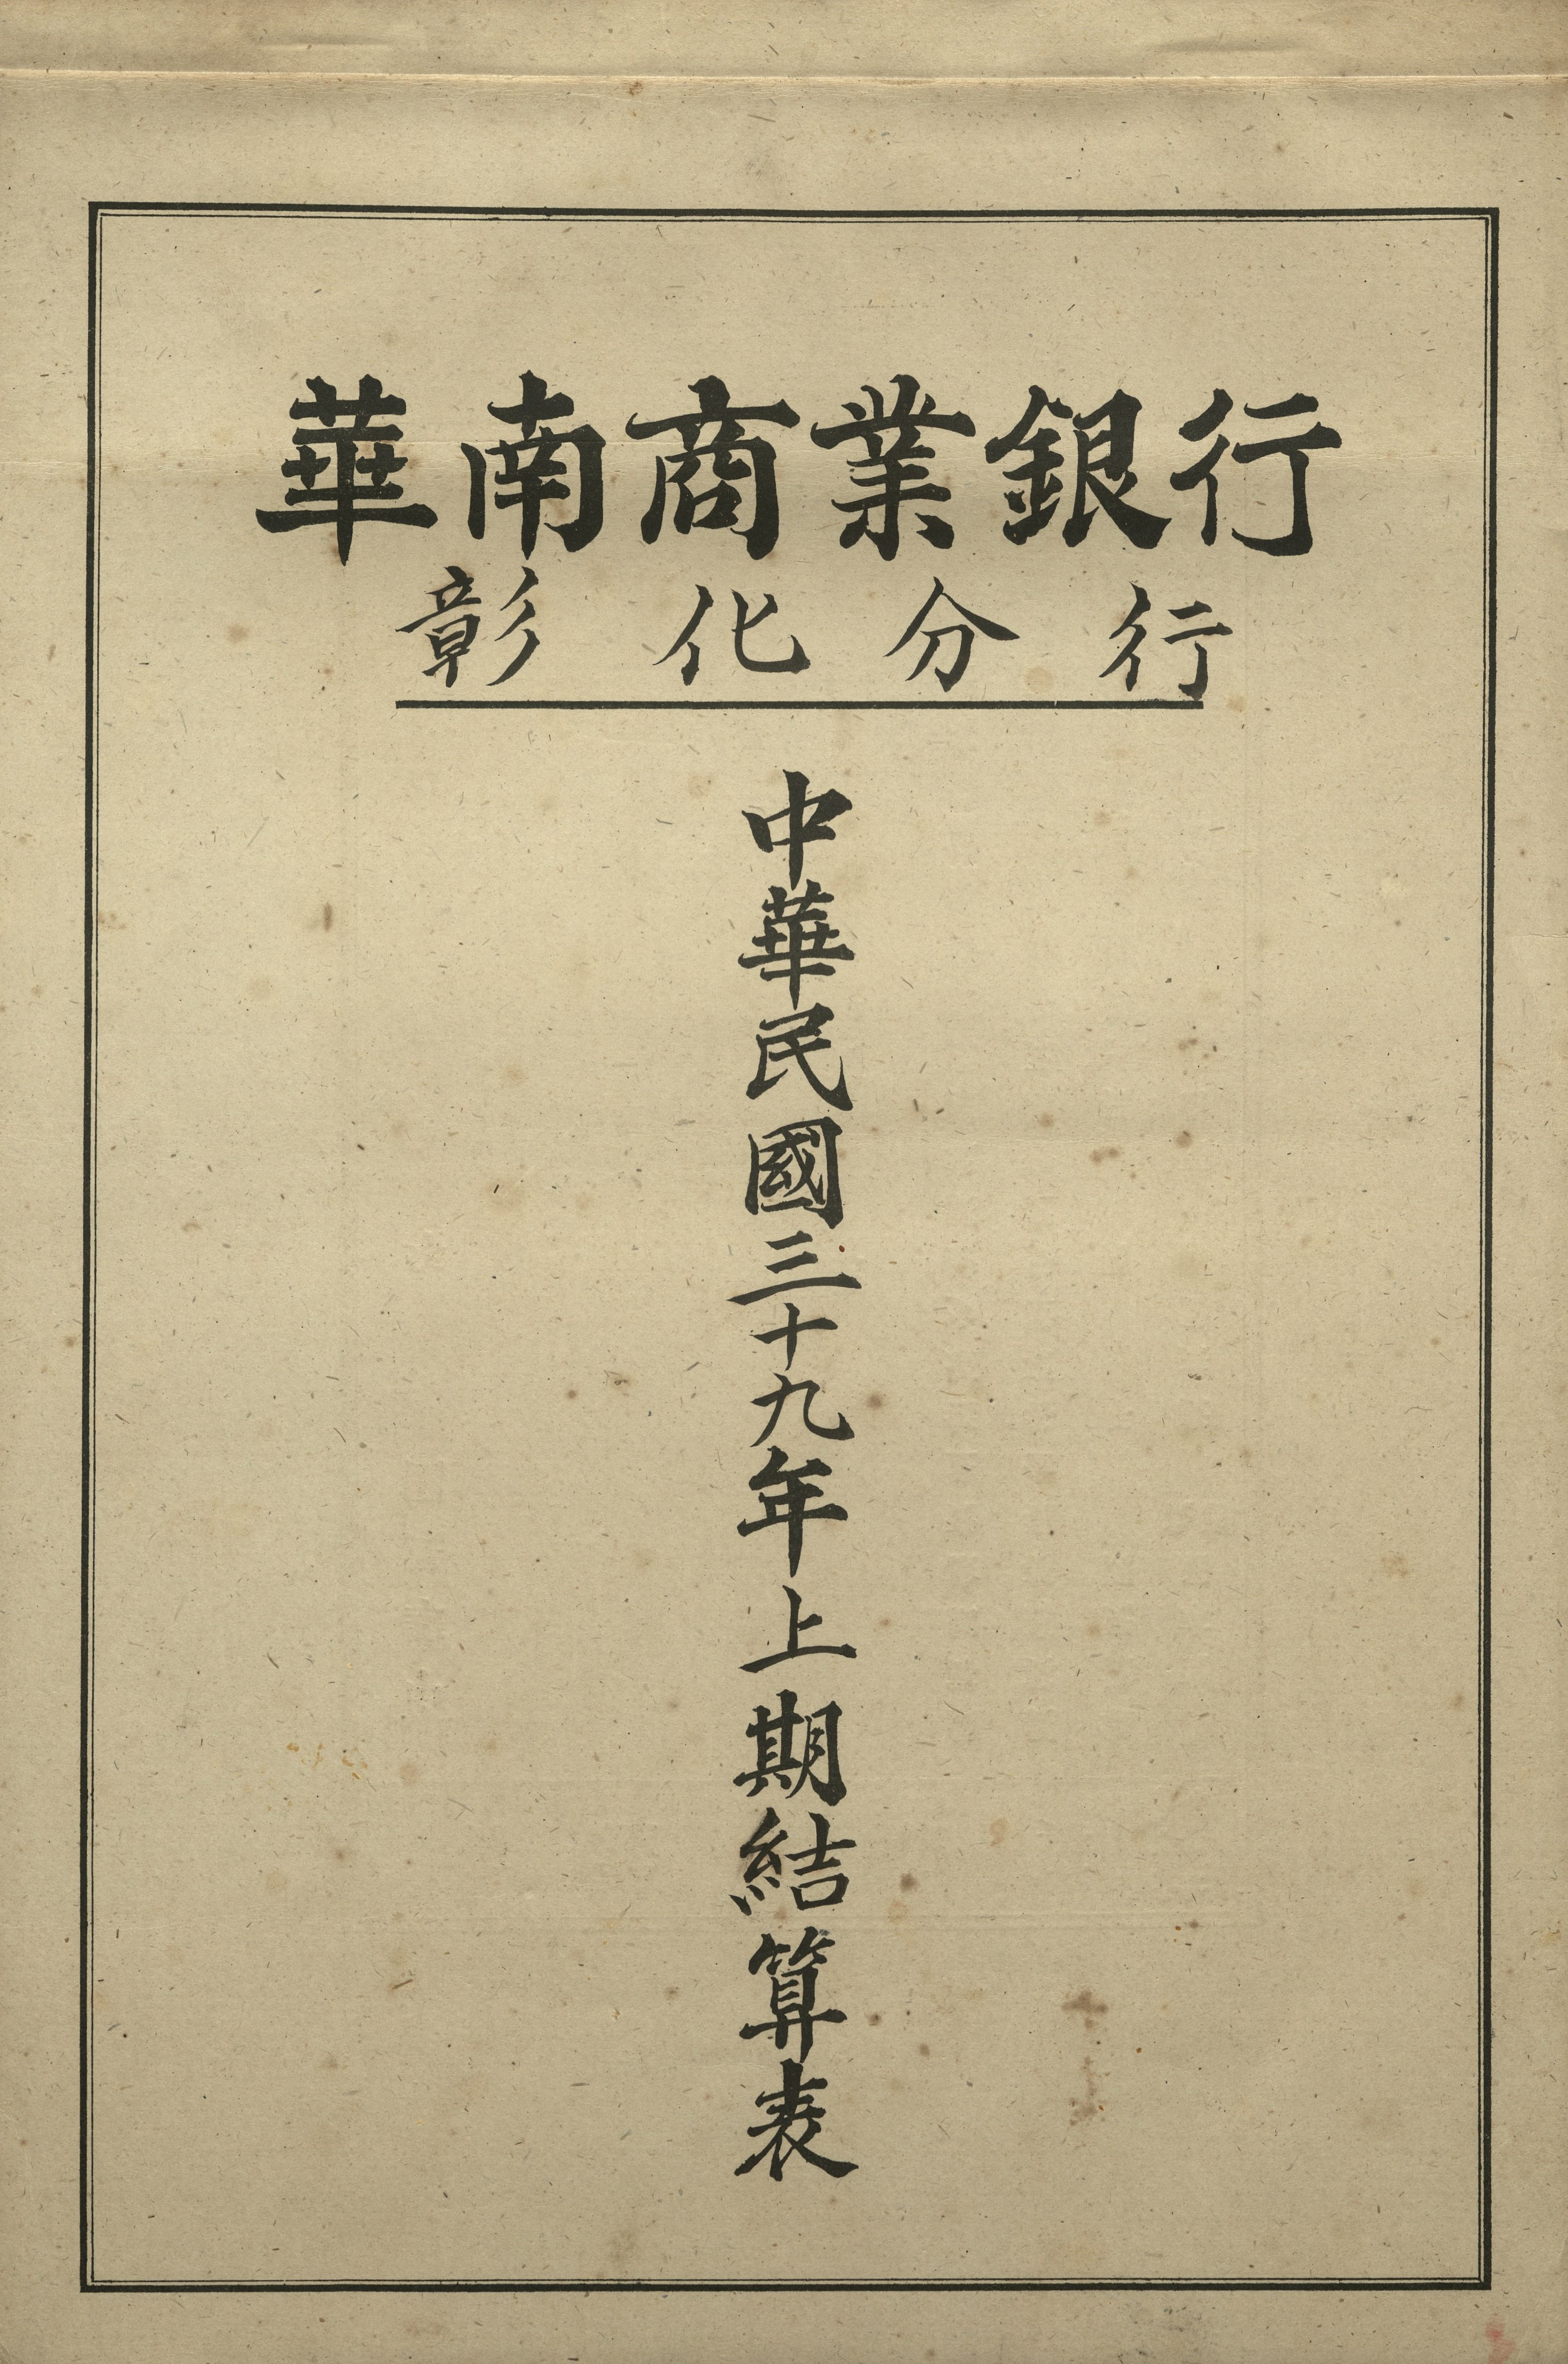 華南商業銀行
彰化分行
中華民國三十九年上期結算表